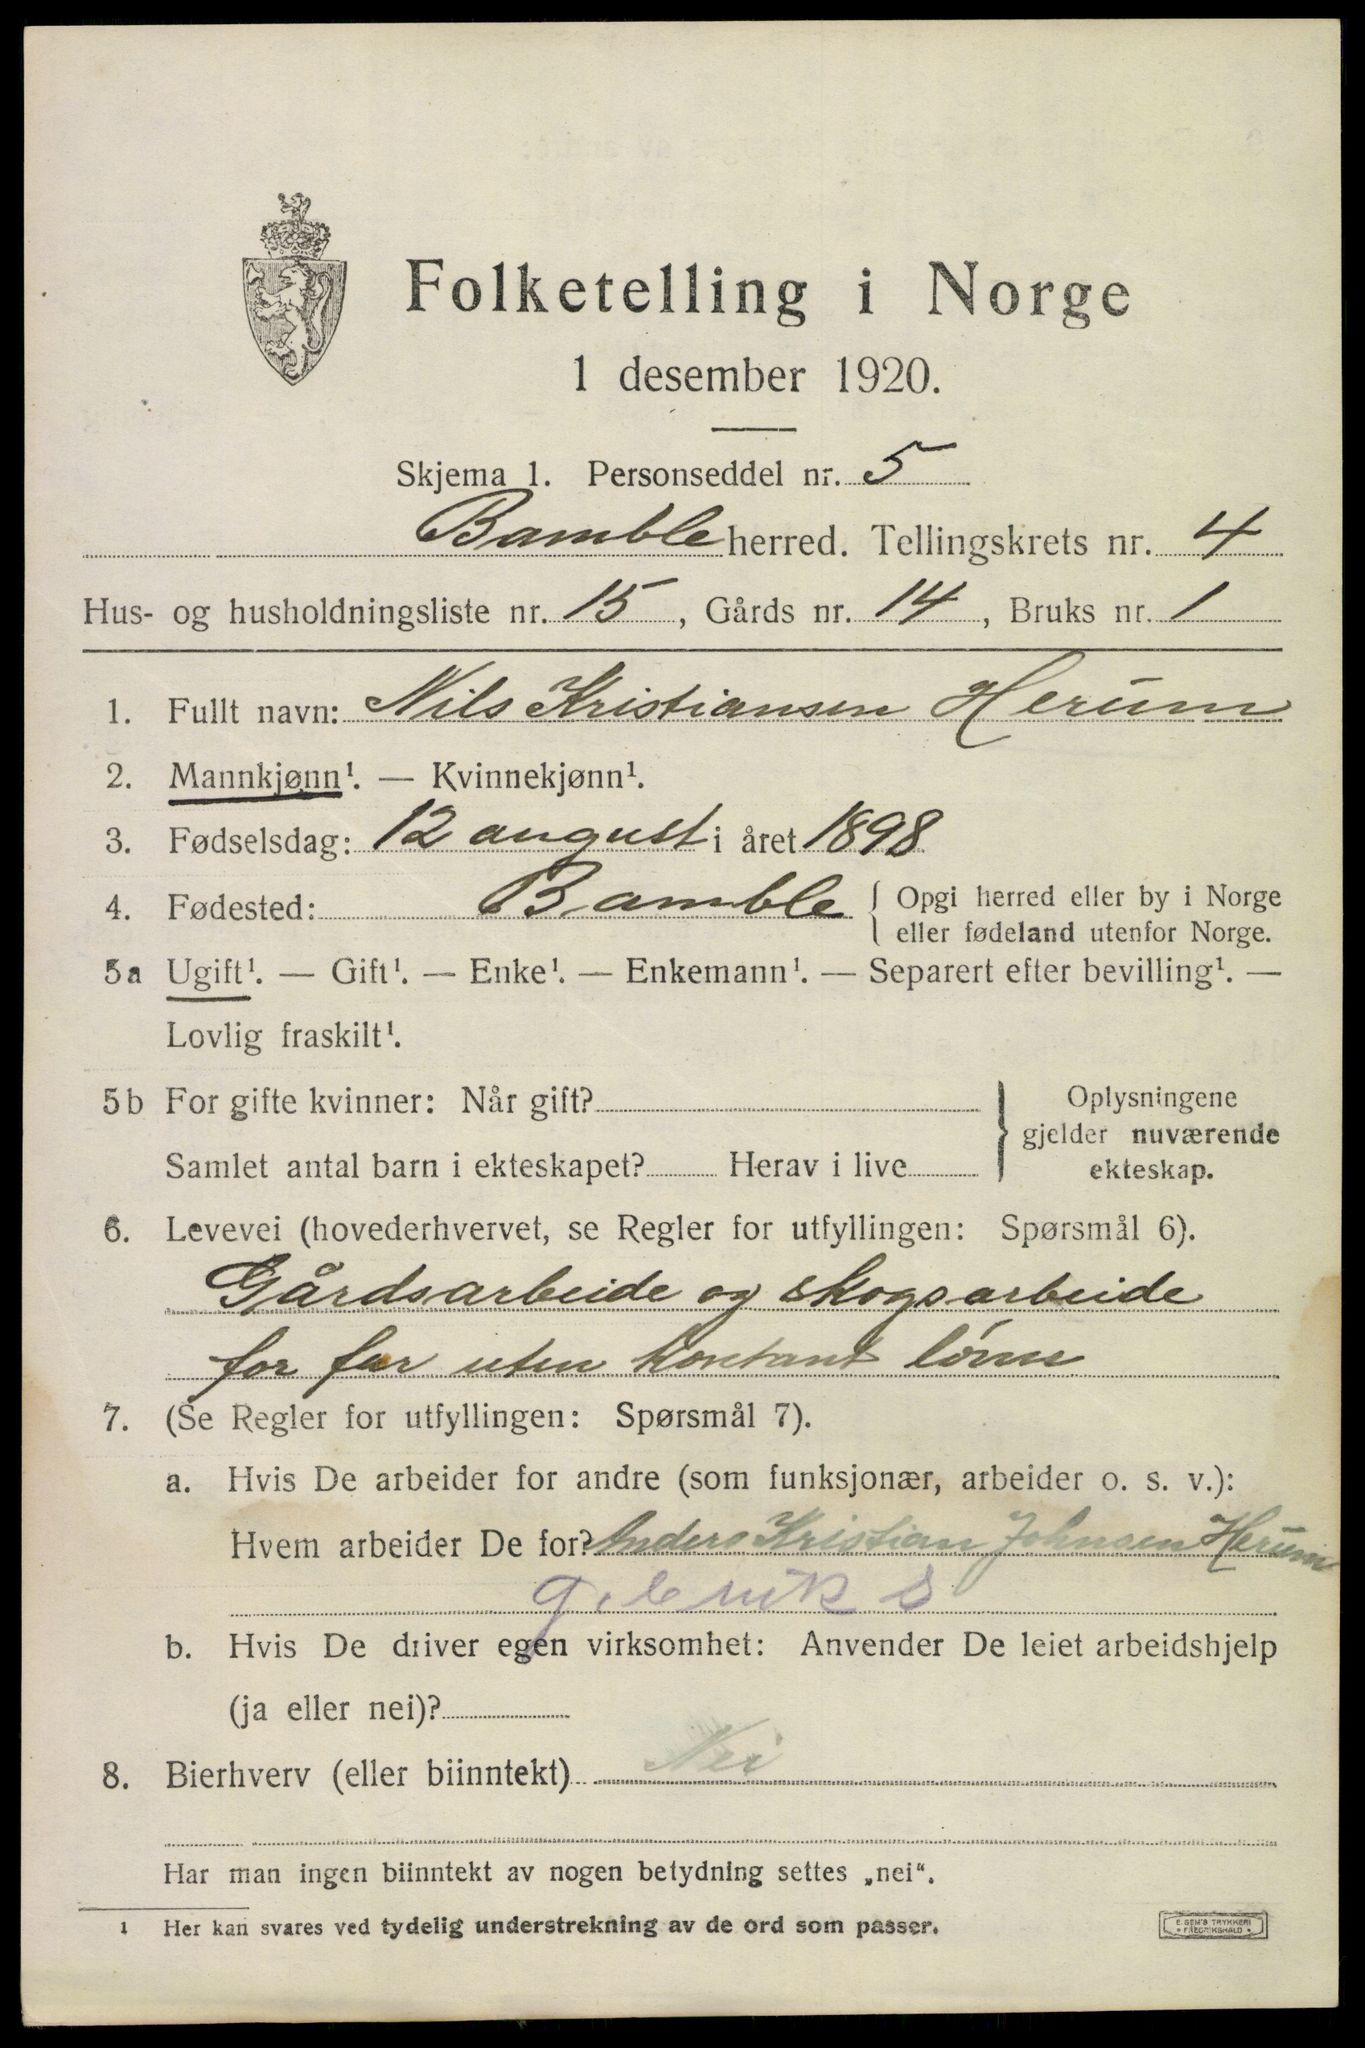 Folketelling i Norge
1 desember 1920.
Skjema 1. Personseddel nr. 5
Bamble herred. Tellingskrets nr. 4
Hus- og husholdningsliste nr. 15, Gårds nr. 14, Bruks nr. 1
1. Fullt navn: Nils Kristiansen Herum
2. Mannkjønn¹. — Kvinnekjønn¹.
3. Fødselsdag: 12 august i året 1898
4. Fødested: Bamble { Opgi herred eller by i Norge
eller fødeland utenfor Norge.
5a Ugift¹. — Gift¹. — Enke¹. — Enkemann¹. — Separert efter bevilling¹. —
Lovlig fraskilt¹.
5b For gifte kvinner: Når gift?
Samlet antal barn i ekteskapet? Herav i live
} Oplysningene
gjelder nuværende
ekteskap.
6. Levevei (hovederhvervet, se Regler for utfyllingen: Spørsmål 6).
Gårdsarbeide og skogsarbeide
for far uten kontant lønn
7. (Se Regler for utfyllingen: Spørsmål 7).
a. Hvis De arbeider for andre (som funksjonær, arbeider o. s. v.):
Hvem arbeider De for? Anders Kristian Johnsen Herum
b. Hvis De driver egen virksomhet: Anvender De leiet arbeidshjelp
(ja eller nei)?
8. Bierhverv (eller biinntekt) Nei
Har man ingen biinntekt av nogen betydning settes „nei“.
¹ Her kan svares ved tydelig understrekning av de ord som passer.
E. SEM'S TRYKKERI
• FREDRIKSHALD •